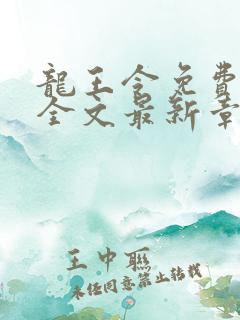 龍王令免費
全文最新章
王中聯
未经同意禁止转载